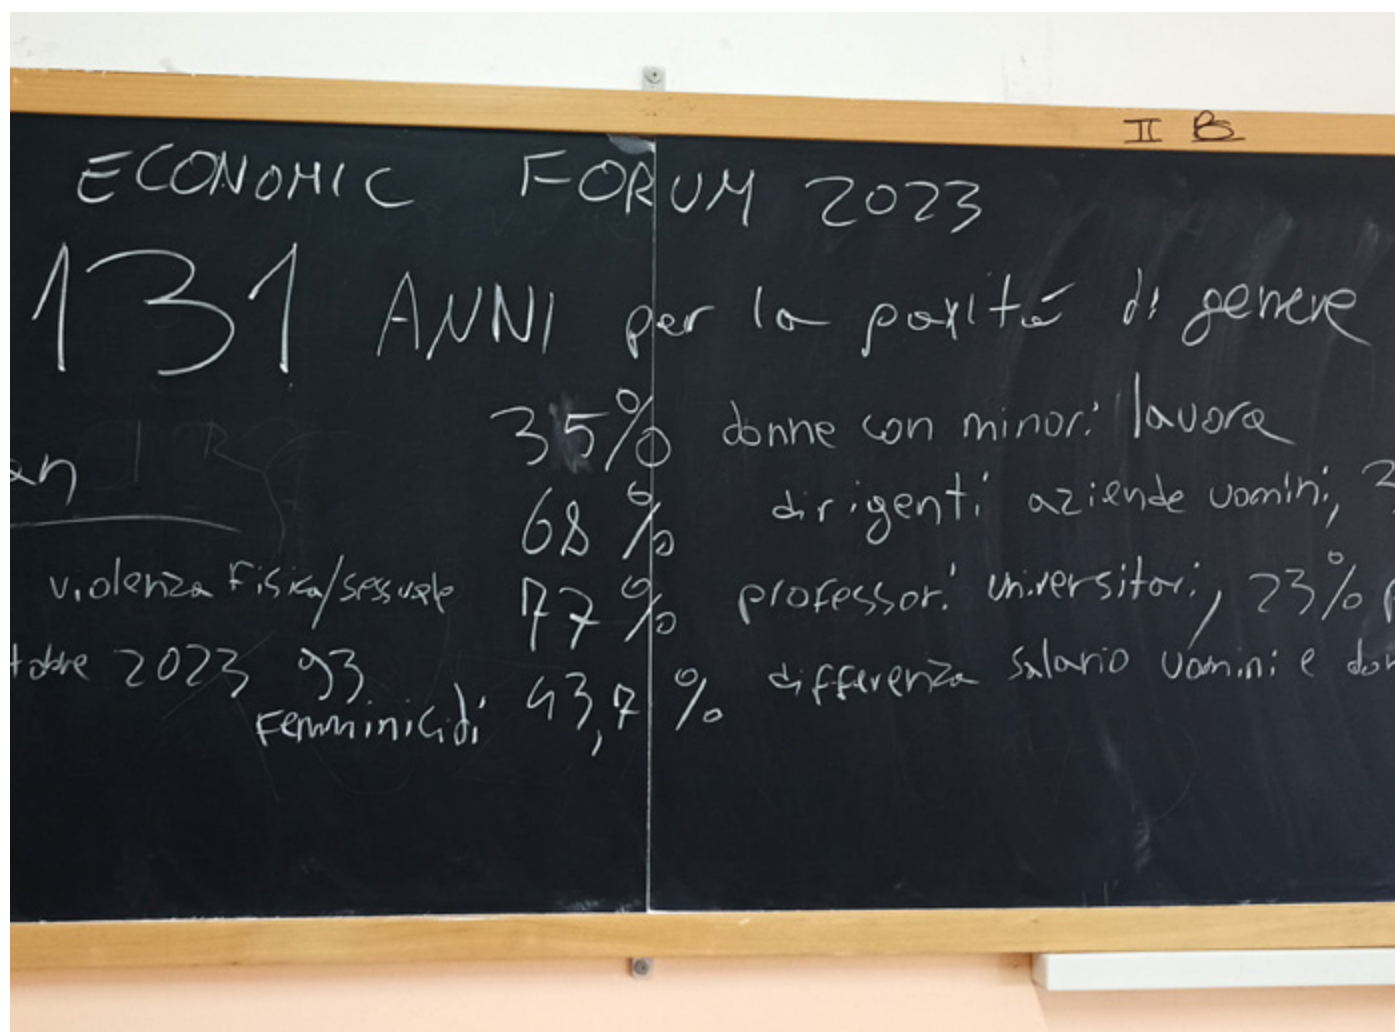 II B
ECONOMIC FORUM 2023
131 ANNI per la parità di genere
35% donne con minori lavora
68% dirigenti aziende uomini,
violenza fisica/sessuale
77% professori universitari, 23%
2023 93 femminicidi
43,7% differenza salario uomini e